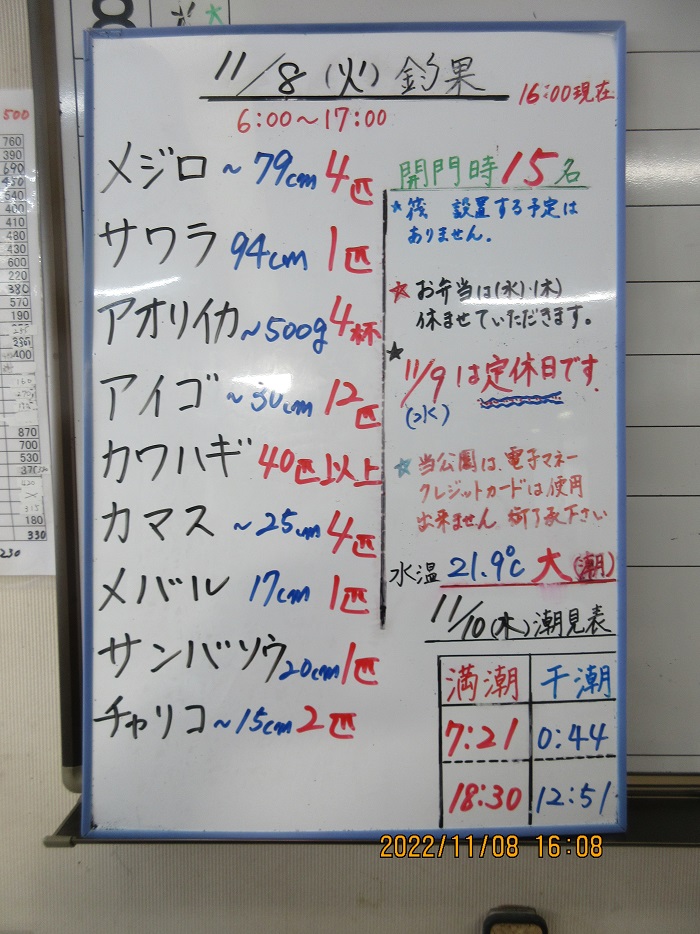 11/8(火)釣果
16:00現在
6:00〜17:00
メジロ 〜79cm 4匹
サワラ 94cm 1匹
アオリイカ 〜500g 4杯
アイゴ 〜30cm 12匹
カワハギ 40匹以上
カマス 〜25cm 4匹
メバル 17cm 1匹
サンバソウ 20cm 1匹
チャリコ 〜15cm 2匹
開門時15名
★筏 設置する予定は
ありません。
★お弁当は(水)・(木)
休ませていただきます。
★11/9は定休日です.
(水)
★当公園は、電子マネー
クレジットカードは使用
出来ません 御了承下さい
水温 21.9℃ 大(潮)
11/10(木)潮見表
満潮 干潮
7:21 0:44
18:30 12:51
500
760
390
690
450
540
400
410
480
430
600
220
380
570
190
400
870
700
530
180
330
230
2022/11/08 16:08